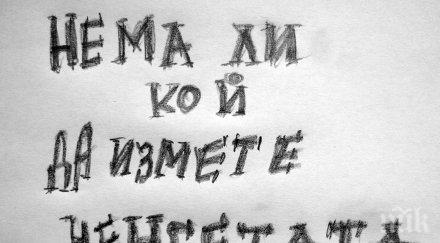 НЕМА ЛИ
КОЙ
ДА ИЗМЕТЕ